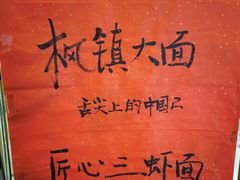 枫镇大面
舌尖上的中国2
匠心三虾面